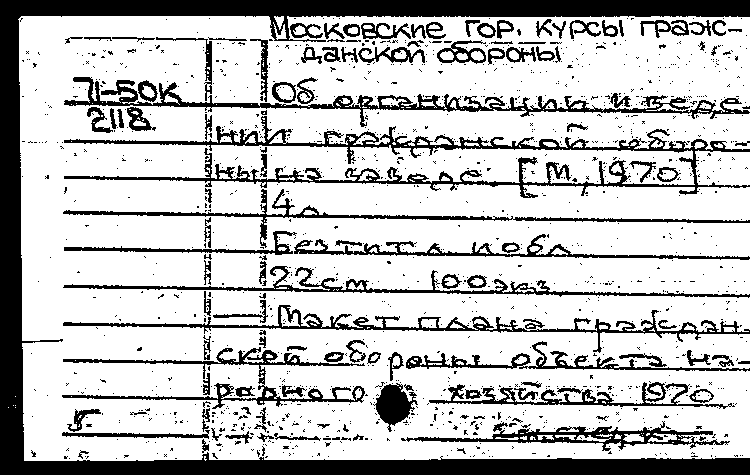 Московские гор. курсы граж-
данской обороны
71-50К
2118
Об организации и веде-
нии гражданской оборо-
ны на заводе. [М., 1970]
4 л.
Без тит. л. и обл.
22 см 100 экз.
— Макет плана граждан-
ской обороны объекта на-
родного хозяйства 1970
5-